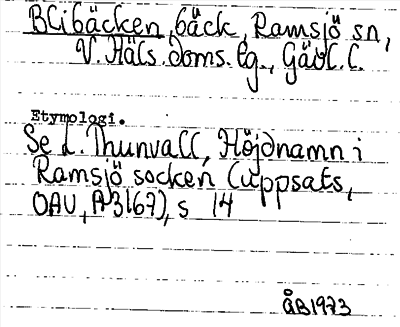 Blibäcken, bäck, Ramsjö sn,
V. Häls. doms. tg., Gävl. l.
Etymologi.
Se L. Thunvall, Höjdnamn i
Ramsjö socken (uppsats,
OAU, A 3167), s 14
ÅB1973